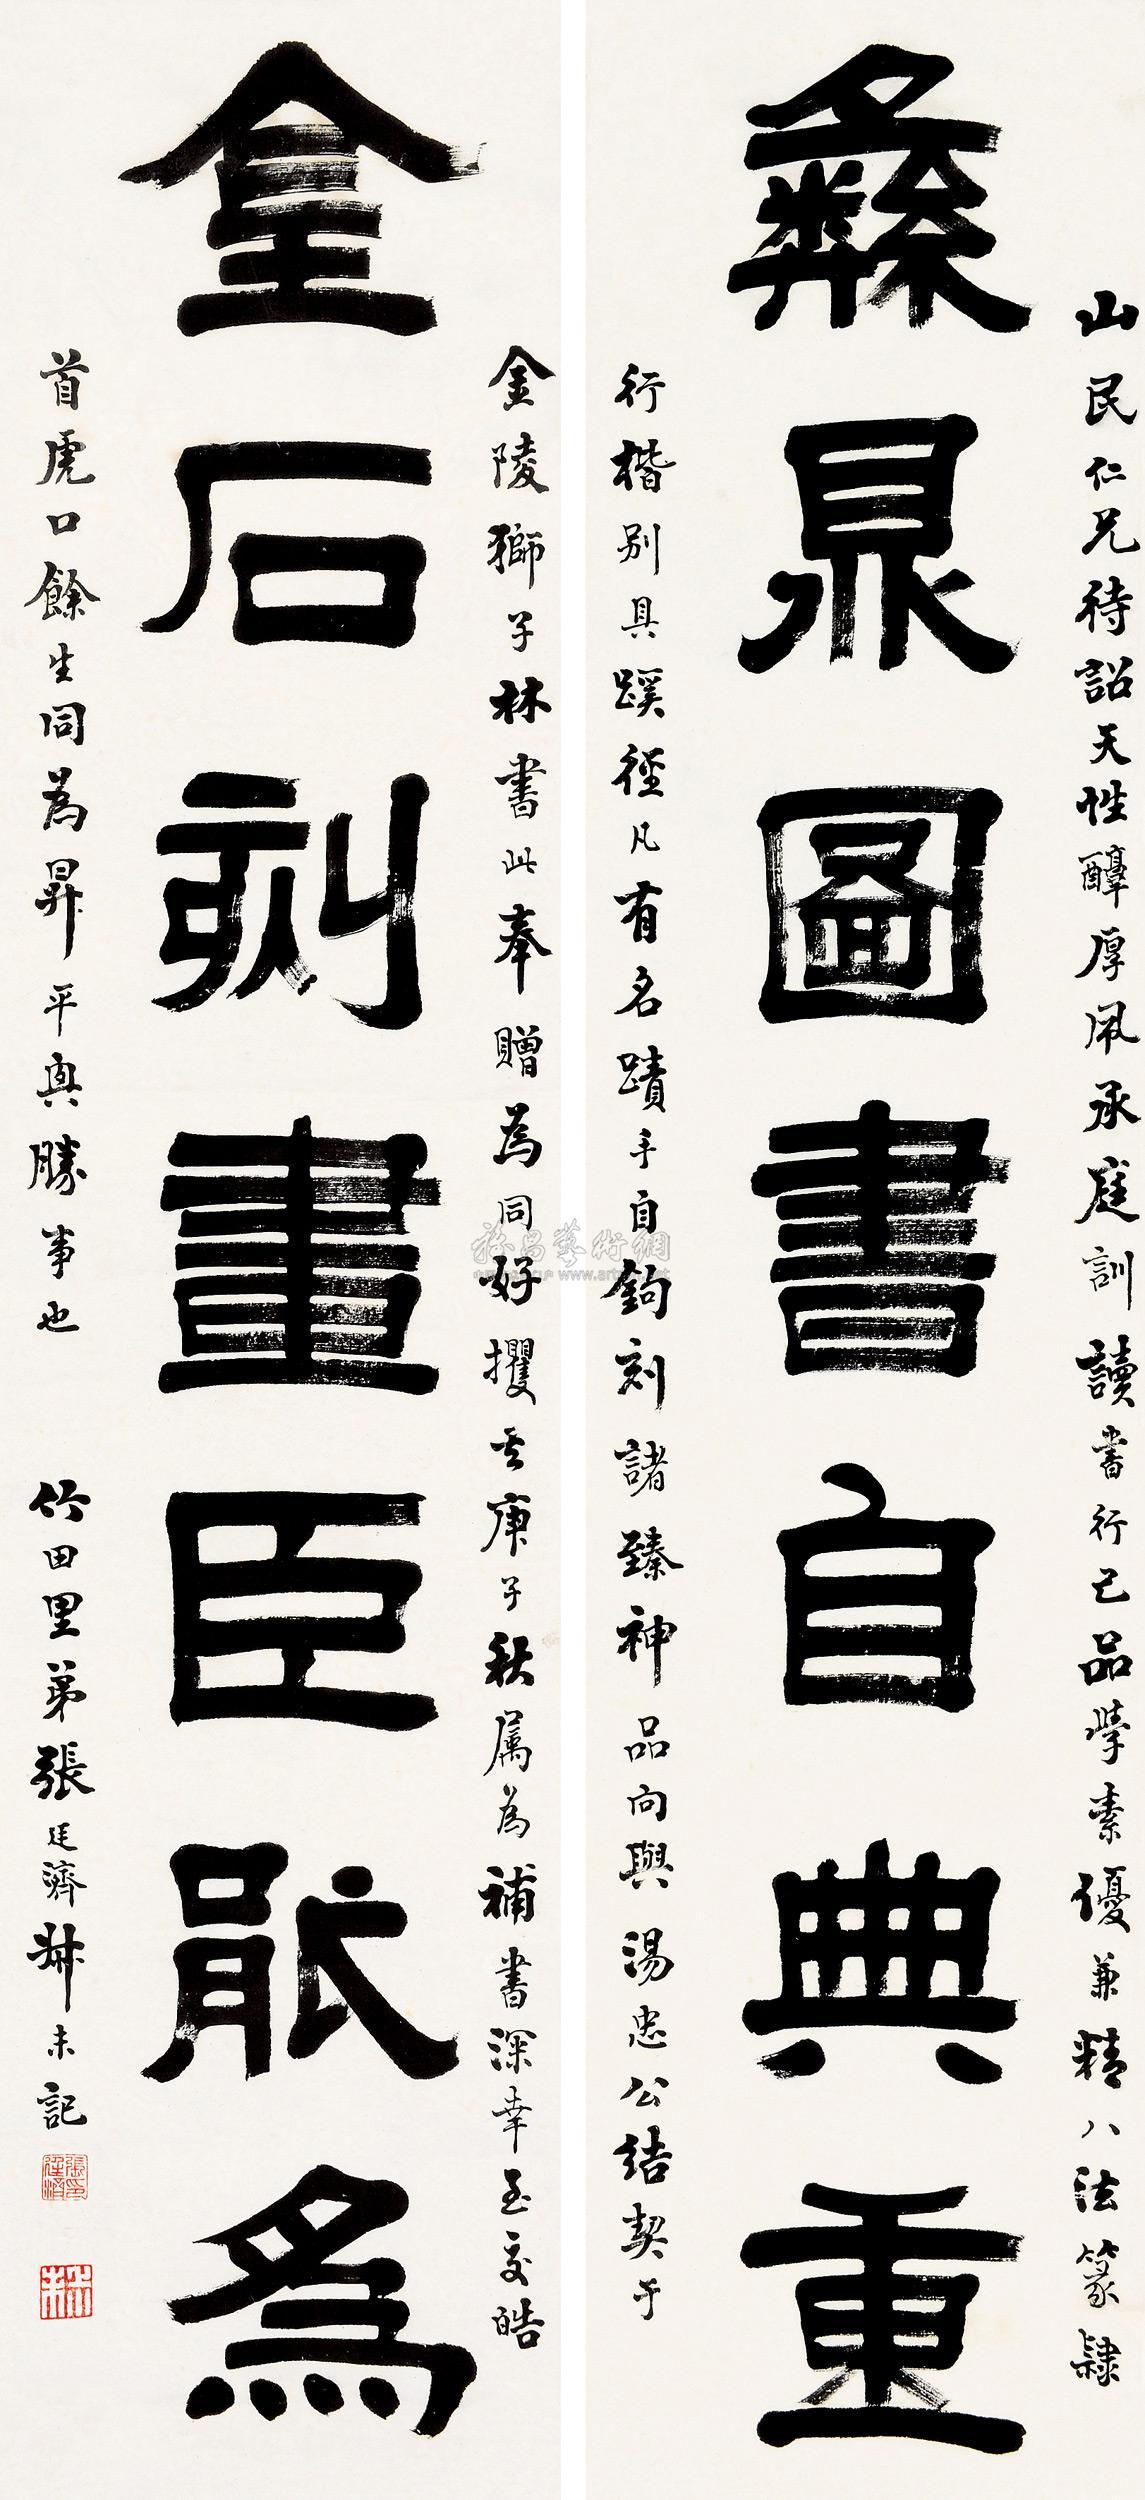 彝鼎圖書自典重
山民仁兄待詔天性醇厚夙承庭訓讀書行己品學素優兼精八法篆隸
行楷別具蹊徑凡有名蹟手自鉤刻諸臻神品向與湯忠公結契于
金石刻畫臣能為
金陵獅子林書此奉贈為同好攫去庚子秋屬為補書深幸至交皓
首虎口餘生同為昇平與勝事也
竹田里弟張廷濟叔未記
張廷濟印
叔未